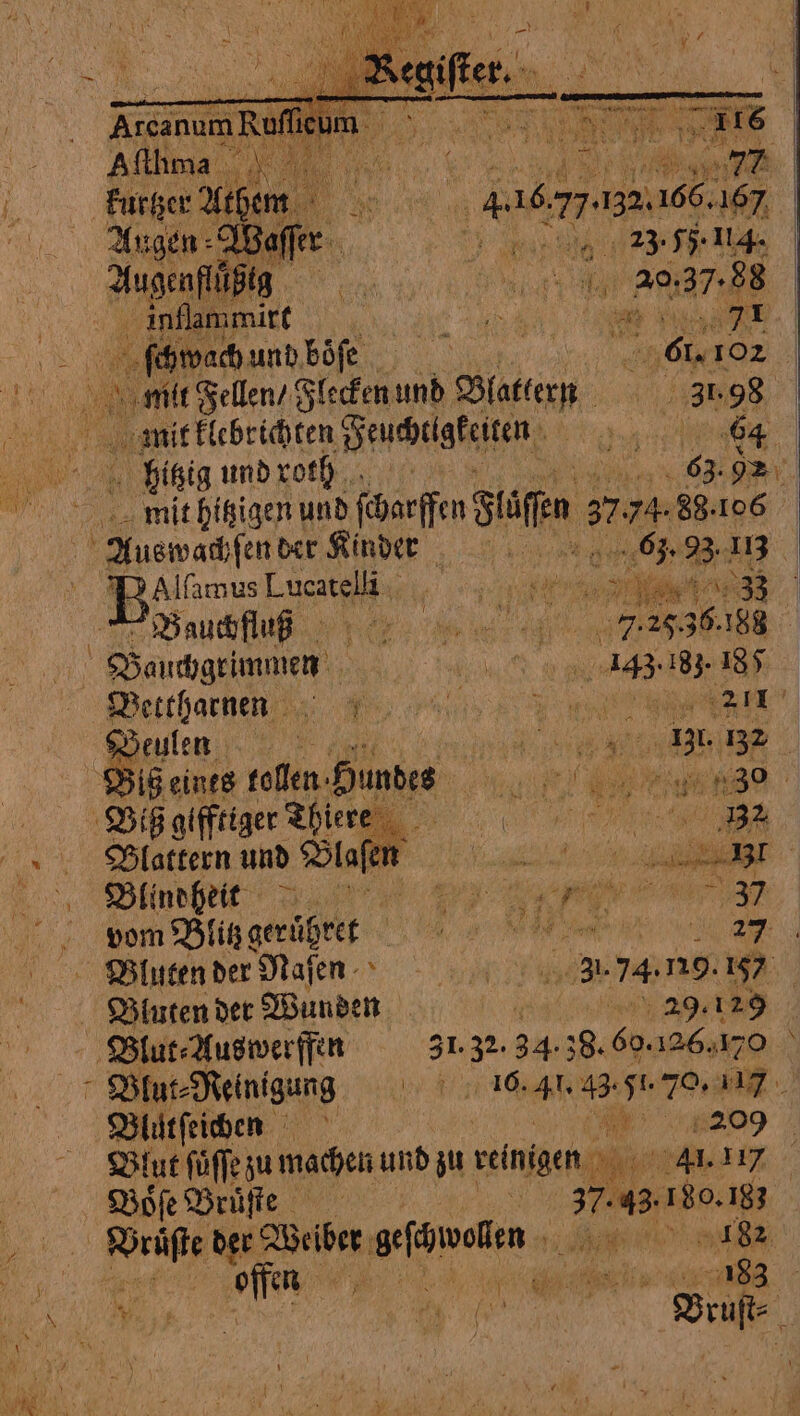 Regiſter.
Arcanum Ruſſicum 116
Aſthma 77
kurtzer Athem 4.16.77.132.166.167
Augen-Waſſer 23.55.114.
Augenflüßig 20.37.88
inflammirt 71
ſchwach und böſe 61.102
mit Fellen/ Flecken und Blattern 31.98
mit klebrichten Feuchtigkeiten 64
hitzig und roth 63.92
mit hitzigen und ſcharffen Flüſſen 37.74.88.106
Auswachſen der Kinder 63.93.113
BAlſamus Lucatelli 33
Bauchfluß 7.25.36.188
Bauchgrimmen 143.183.185
Bettharnen 211
Beulen 131.132
Biß eines tollen Hundes 30
Biß gifftiger Thiere 132
Blattern und Blaſen 131
Blindheit 37
vom Blitz gerühret 27
Bluten der Naſen 31.74.129.157
Bluten der Wunden 29.129
Blut-Auswerffen 31.32.34.38.60.126.170
Blut-Reinigung 16.41.43.51.70.117
Blutſeichen 209
Blut ſüſſe zu machen und zu reinigen 41.117
Böſe Brüſte 37.43.180.183
Brüſte der Weiber geſchwollen 182
offen 183
Bruſt-